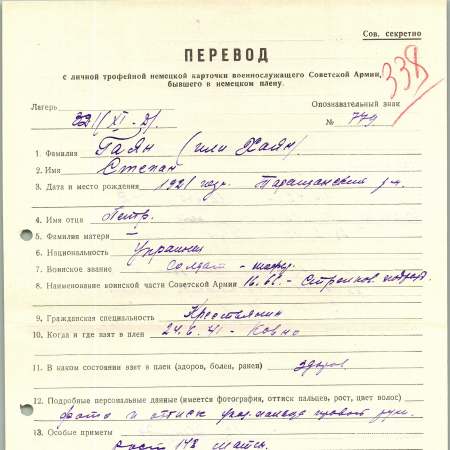 Сов. секретно
338
ПЕРЕВОД
с личной трофейной немецкой карточки военнослужащего Советской Армии,
бывшего в немецком плену.
Лагерь XI-D/.
Опознавательный знак
№ 779
1. Фамилия Гаян (или Хаян).
2. Имя Степан
3. Дата и место рождения 1921 году. Таращанский
4. Имя отца Петр.
5. Фамилия матери —
6. Национальность Украинец
7. Воинское звание Солдат -
8. Наименование воинской части Советской Армии 16. - Стрелков.
9. Гражданская специальность Крестьянин
10. Когда и где взят в плен 24.6.41 - Ковно
11. В каком состоянии взят в плен (здоров, болен, ранен) здоров
12. Подробные персональные данные (имеется фотография, оттиск пальцев, рост, цвет волос)
фото и оттиск пальца правой руки.
13. Особые приметы
рост 178